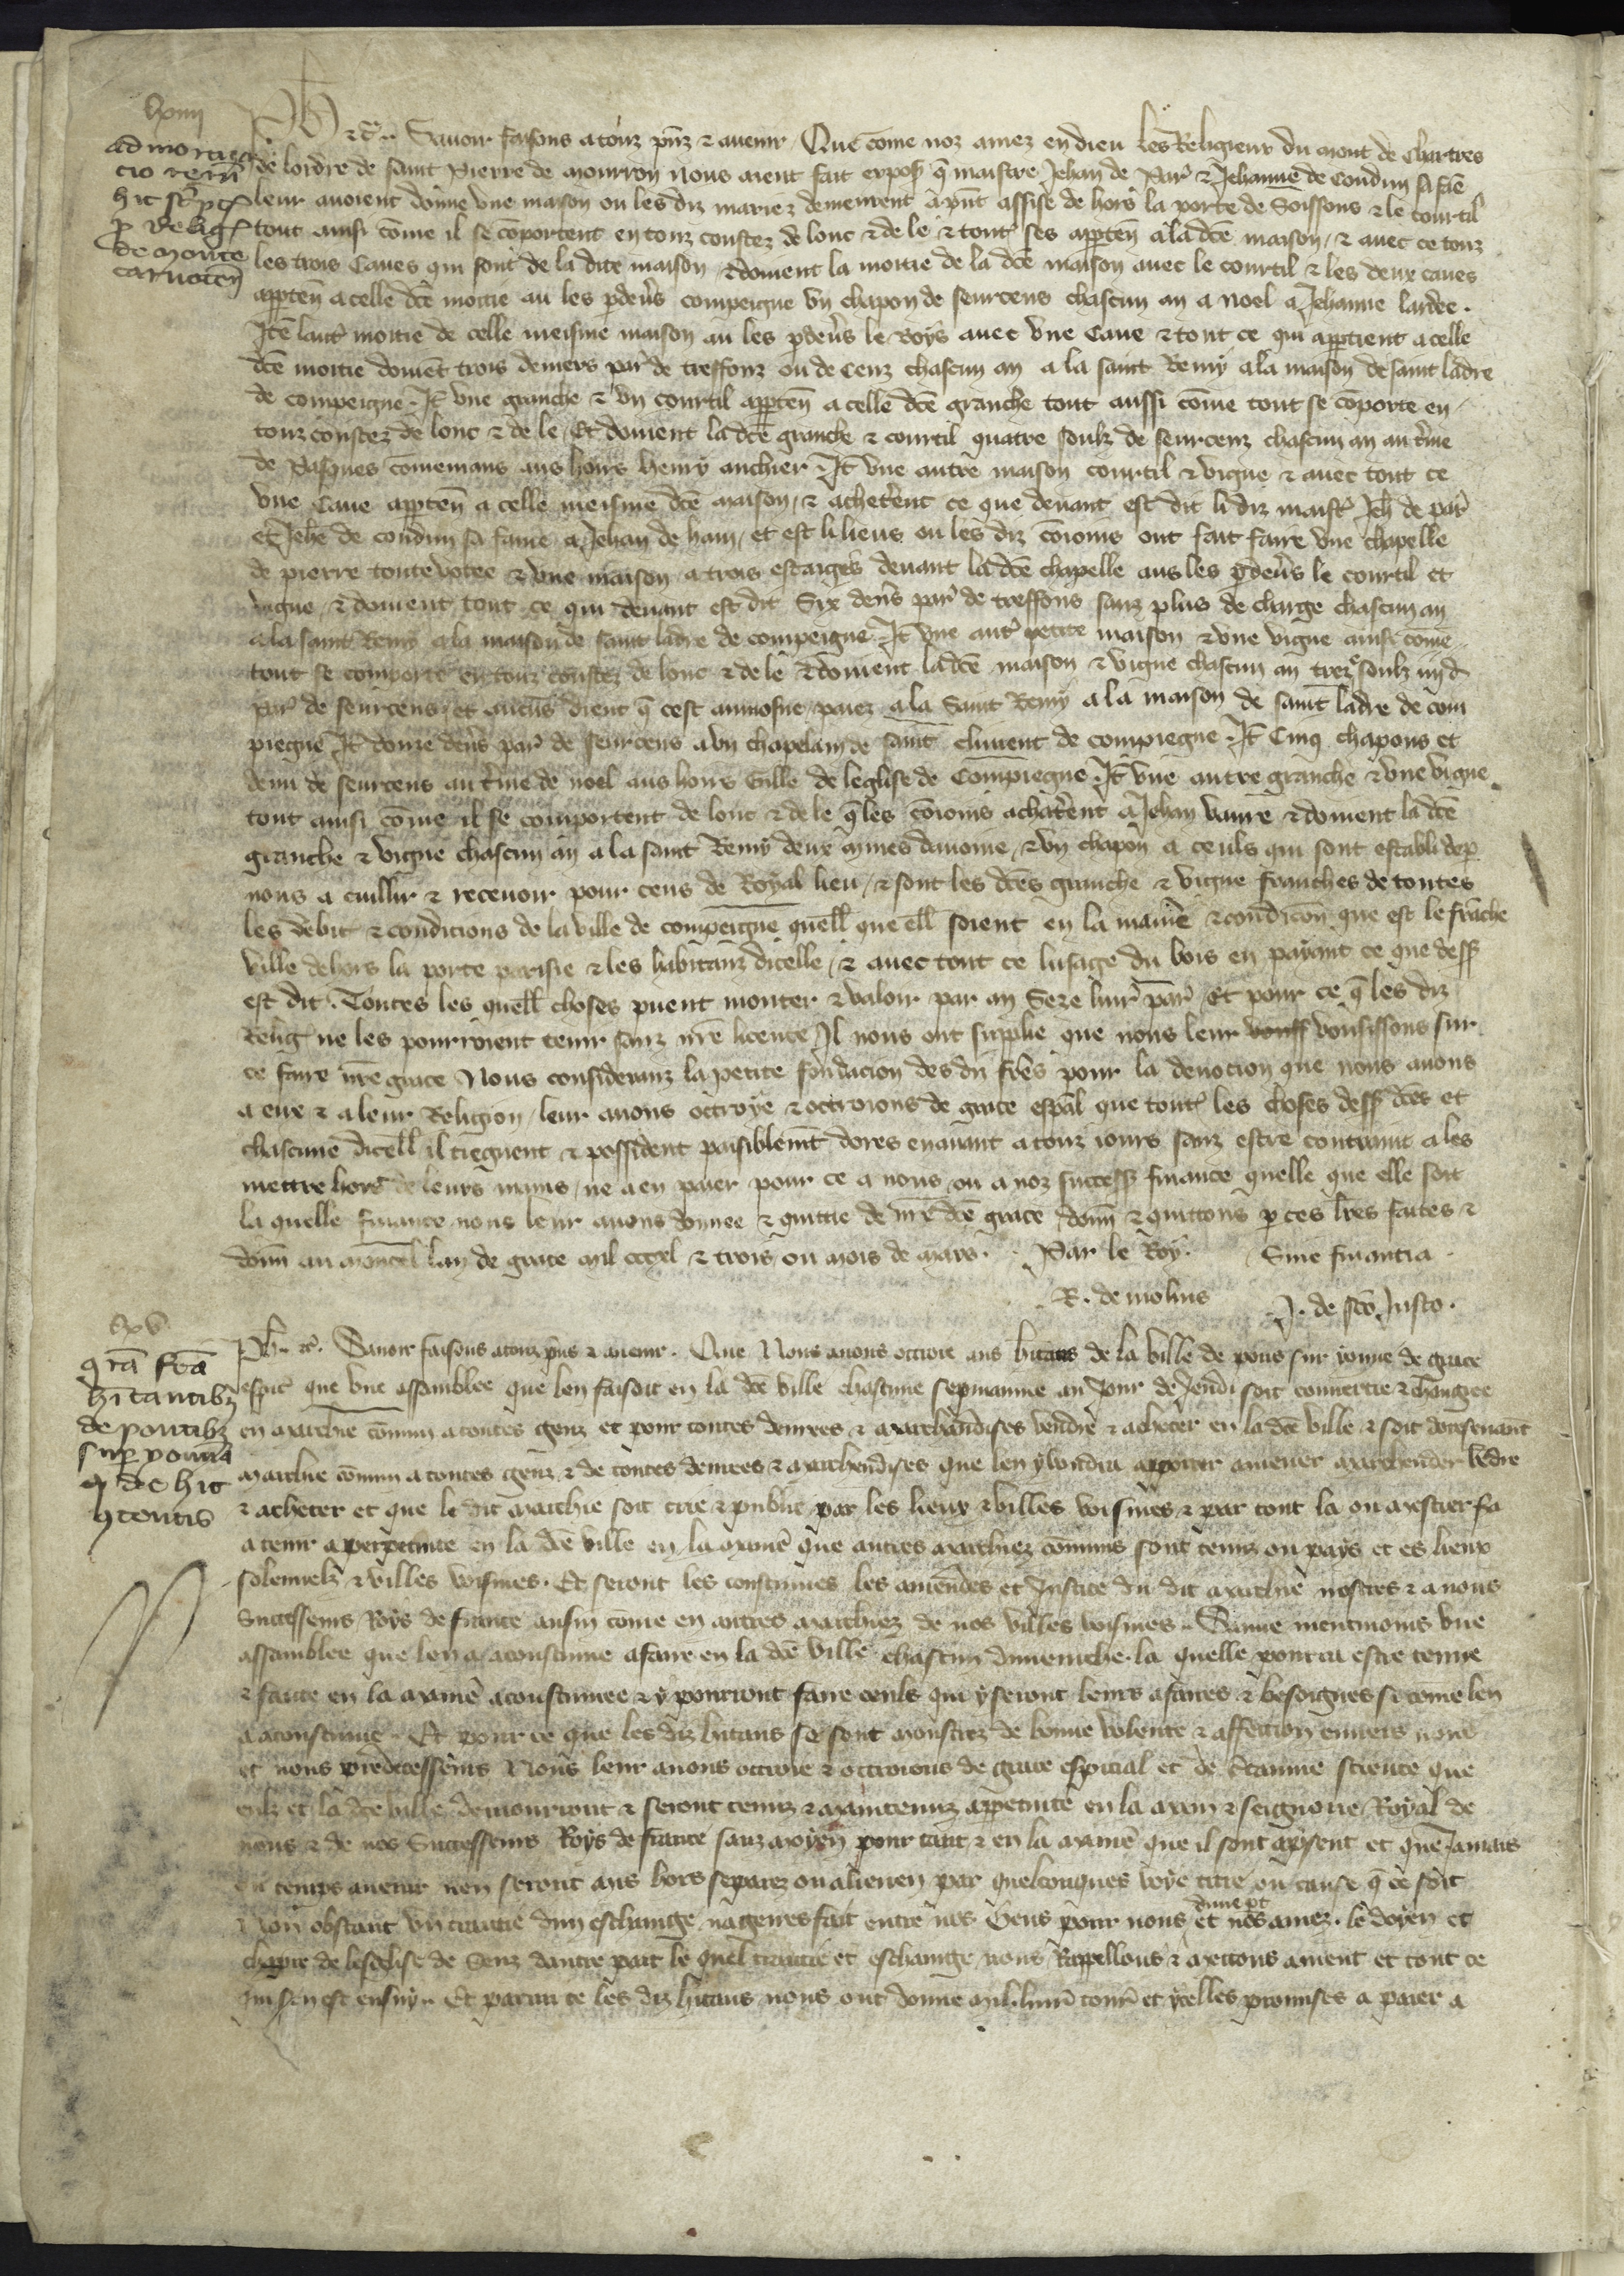 lxiiii
admortiza
cio reru᷑
hic scᷓpt᷑
ꝑ Relig᷑
de monte
carnoten̄
Ph̄ ⁊c̄. Sauoir faisons a touz p̄nz ⁊ auenir Que cōme noz amez en dieu les Religieux du mont de Chartres
de lordre de saint Pierre de mourron nous aient fait expos̄ q̄ maistre Jehan de Par̄ ⁊ Jehanne de Coudun sa fāe
leur auoient donne vne maison ou les diz mariez demeurent a p̄nt assise de hors la porte de Soissons ⁊ le courtil
tout ainsi cōme il se cōportent en touz coustez de lonc ⁊ de le ⁊ tout᷑ ses apꝑten̄ a la dc̄e maison, ⁊ auec ce touz
les trois Caues qui sont de la dite maison, ⁊ doiuent la moitie de la dc̄e maison auec le courtil ⁊ les deux caues
apꝑten̄ a celle dc̄e moitie au les ꝑdeu̓s compeigne vn chapon de seurcens chascun an a noel a Jehanne lardee.
Itē laut᷑ moitie de celle meisme maison au les ꝑdeu̓s le Roys auec vne Caue ⁊ tout ce qui apꝑtient a celle
dc̄e moitie doiuēt trois deniers par̄ de treffonz ou de Cenz chascun an a la saint Remy a la maison de saint ladre
de compeigne. It̄ vne granche ⁊ vn courtil apꝑten̄ a celle dc̄e granche tout aussi cōme tout se cōporte en
touz coustez de lonc ⁊ de le, Et doiuent la dc̄e granche ⁊ courtil quatre soulz de seurcenz chascun an au t̓me
de Pasques cōmenians aus hoirs henry anchier. It̄ vne autre maison courtil ⁊ vigne ⁊ auec tout ce
vne Caue apꝑten̄ a celle meisme dc̄e maison, ⁊ achetēent ce que deuant est dit li diz maist᷑ Jeh̄ de par̄
et Jeh̄e de coudun sa fame a Jehan de ham, et est li lieus ou les diz cōioins ont fait faire vne chapelle
de pierre toute votee ⁊ vne maison a trois estaiges deuant la dc̄e chapelle aus les ꝑdeu̓s le courtil et
vigne, ⁊ doiuent tout ce qui deuant est dit Six den̓s par̄ de treffons sanz plus de charge chascun an
a la saint Remy a la maison de saint ladre de compeigne. It̄ vne aut᷑ petite maison ⁊ vne vigne ainsi cōme
tout se comporte en touz coustez de lonc ⁊ de le ⁊ doiuent la dc̄e maison ⁊ vigne chascun an treze soulz iiij d
par̄ de seurcens, et aucu̓s dient q̄ cest aumosne, paiez a la Saint Remy a la maison de saint ladre de com
piegne It̄ douze den̓s par̄ de seurcens a vn chapelain de saint climent de compiegne. It̄ Cinq chapons et
demi de seurcens au t̓me de noel aus hoirs Gille de leglise de Compiegne. It̄ vne autre granche ⁊ vne vigne
tout ainsi cōme il se comportent de lonc ⁊ de le q̄ les cōioins achatērent a Jehan vaure ⁊ doiuent la dc̄e
granche ⁊ vigne chascun an a la saint Remy deux mines dauoine, ⁊ vn chapon a ceuls qui sont establi de ꝑ
nous a cuillir ⁊ receuoir pour cens de Royal lieu, ⁊ sont les dc̄es granche ⁊ vigne franches de toutes
les debit᷑ ⁊ condicions de la ville de compeigne quell᷑ que ell᷑ soient en la mani̓e ⁊ condicōn que est le franche
ville dehors la porte parisie ⁊ les habitanz dicelle, ⁊ auec tout ce lusage du bois en payant ce que dess̄
est dit. Toutes les quell᷑ choses puent monter ⁊ valoir par an Seze liur̄ par̄, Et pour ce q̄ les diz
Relig᷑ ne les pourroient tenir sanz nr̄e licence, Il nous ont supplie que nous leur vousissons sur
ce faire nr̄e grace Nous consideranz la petite fondacion des diz fr̄es pour la deuocion que nous auons
a eux ⁊ a leur Religion, leur auons octroye ⁊ octroions de grace esp̄al que tout᷑ les choses dess̄ dc̄es et
chascune dicell᷑ il tiegnent ⁊ possident paisiblem̄t dores enauant a touz iours sanz estre contraint a les
mettre hors de leurs mains, ne a en paier pour ce a nous ou a noz success̄ finance quelle que elle soit
la quelle finance nous leur auons donnee ⁊ quittie de nr̄e dc̄e grace don̄n ⁊ quittons ꝑ ces lr̄es faites ⁊
don̄n au moncel lan de grace mil cccxl ⁊ trois ou mois de mars. Par le Roy. Sine financia.
R. de molins J. de sc̄o Justo.
lxv
gr̄a fc̄a
hītantibꝫ
de pontibꝫ
suꝑ yonnā
q̄ de hic
ꝯtentis
Ph̄. ⁊c̄. Sauoir faisons a touz p̄ns ⁊ auenir. Que Nous auons octroie aus hītans de la ville de pons sur yonne de grace
esp̄it᷑ que vne assamblee que len faisoit en la dc̄e ville chascune sepmainne au Jour de Jeudi soit conuertie ⁊ changee
en marchie cōmun a toutes genz et pour toutes denrees ⁊ marchandises vendre ⁊ acheter en la dc̄e ville, ⁊ soit doresenauant
marchie cōmun a toutes genz ⁊ de toutes denrees ⁊ marchendises que len y vendra apporter amener marchander vēdre
⁊ acheter et que le dit marchie soit crie ⁊ publie par les lieux ⁊ villes voisines ⁊ par tout la ou mestier s̓a
a tenir a perpetuite en la dc̄e ville en la mani̓e que autres marchiez cōmuns sont tenuz ou pays et es lieux
solennelz ⁊ villes voisines. Et seront les coustumes les amendes et Justice du dit marchie nostres ⁊ a nous
Successeurs Roys de france ausin cōme en autres marchiez de nos villes voisines. Sauue nientmoins vne
assamblee que len a acoustume a faire en la dc̄e ville chascun diuenche. la quelle pourra estre tenue
⁊ faite en la mani̓e acoustumee ⁊ y pourront faire ceuls qui y seront leurs afaires ⁊ besoignes si cōme len
a acoustume. Et pour ce que les diz hītans se sont monstrez de bonne volente ⁊ affection enuers nous
et nous predecesseurs Nous leur auons octroie ⁊ octroions de grace especial et de c̓tainne science que
eulz et la dc̄e ville demourront ⁊ seront tenuz ⁊ maintenuz a ꝑpetuite en la main ⁊ seignorie Royal de
nous ⁊ de nos Successeurs Roys de france sanz moyen pour tant ⁊ en la mani̓e que il sont a p̄sent et que Jamais
ou temps auenir nen seront mis hors separez ou alienez par quelconques voye titre ou cause q̄ ce soit
Non obstant vn traitie dun eschange nagueres fait entre nos Gens pour nous dune p̄t et nos amez. le doyen et
chapitre de lesglise de Senz dautre part le quel traitie et eschange nous Rappellons ⁊ mettons au nient et tout ce
qui sen est ensuy. Et parmi ce les diz hītans nous ont donne mil liur̄ tour̄ et ycelles promises a paier a